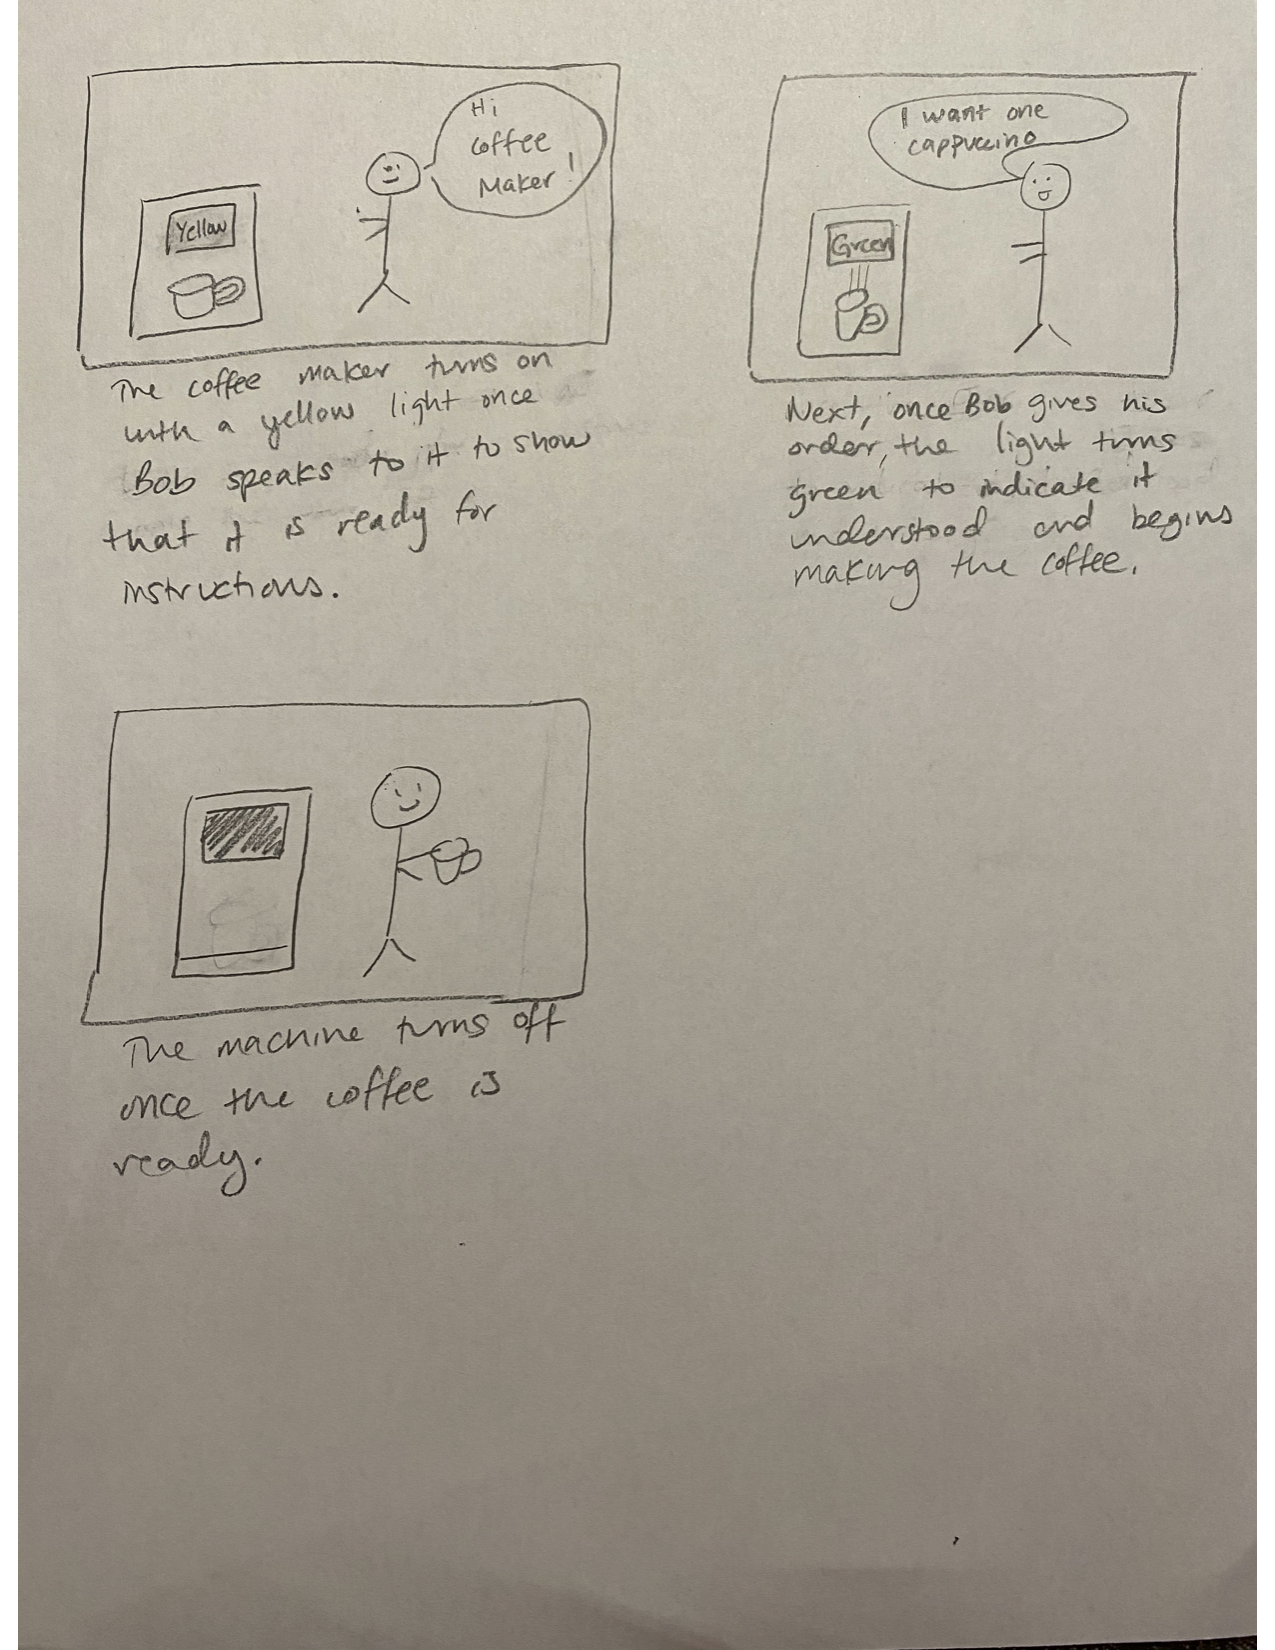 Hi
Coffee
Maker!
Yellow
The coffee maker turns on
with a yellow light once
Bob speaks to it to show
that it is ready for
instructions.
I want one
cappuccino
Green
Next, once Bob gives his
order, the light turns
green to indicate it
understood and begins
making the coffee.
The machine turns off
once the coffee is
ready.